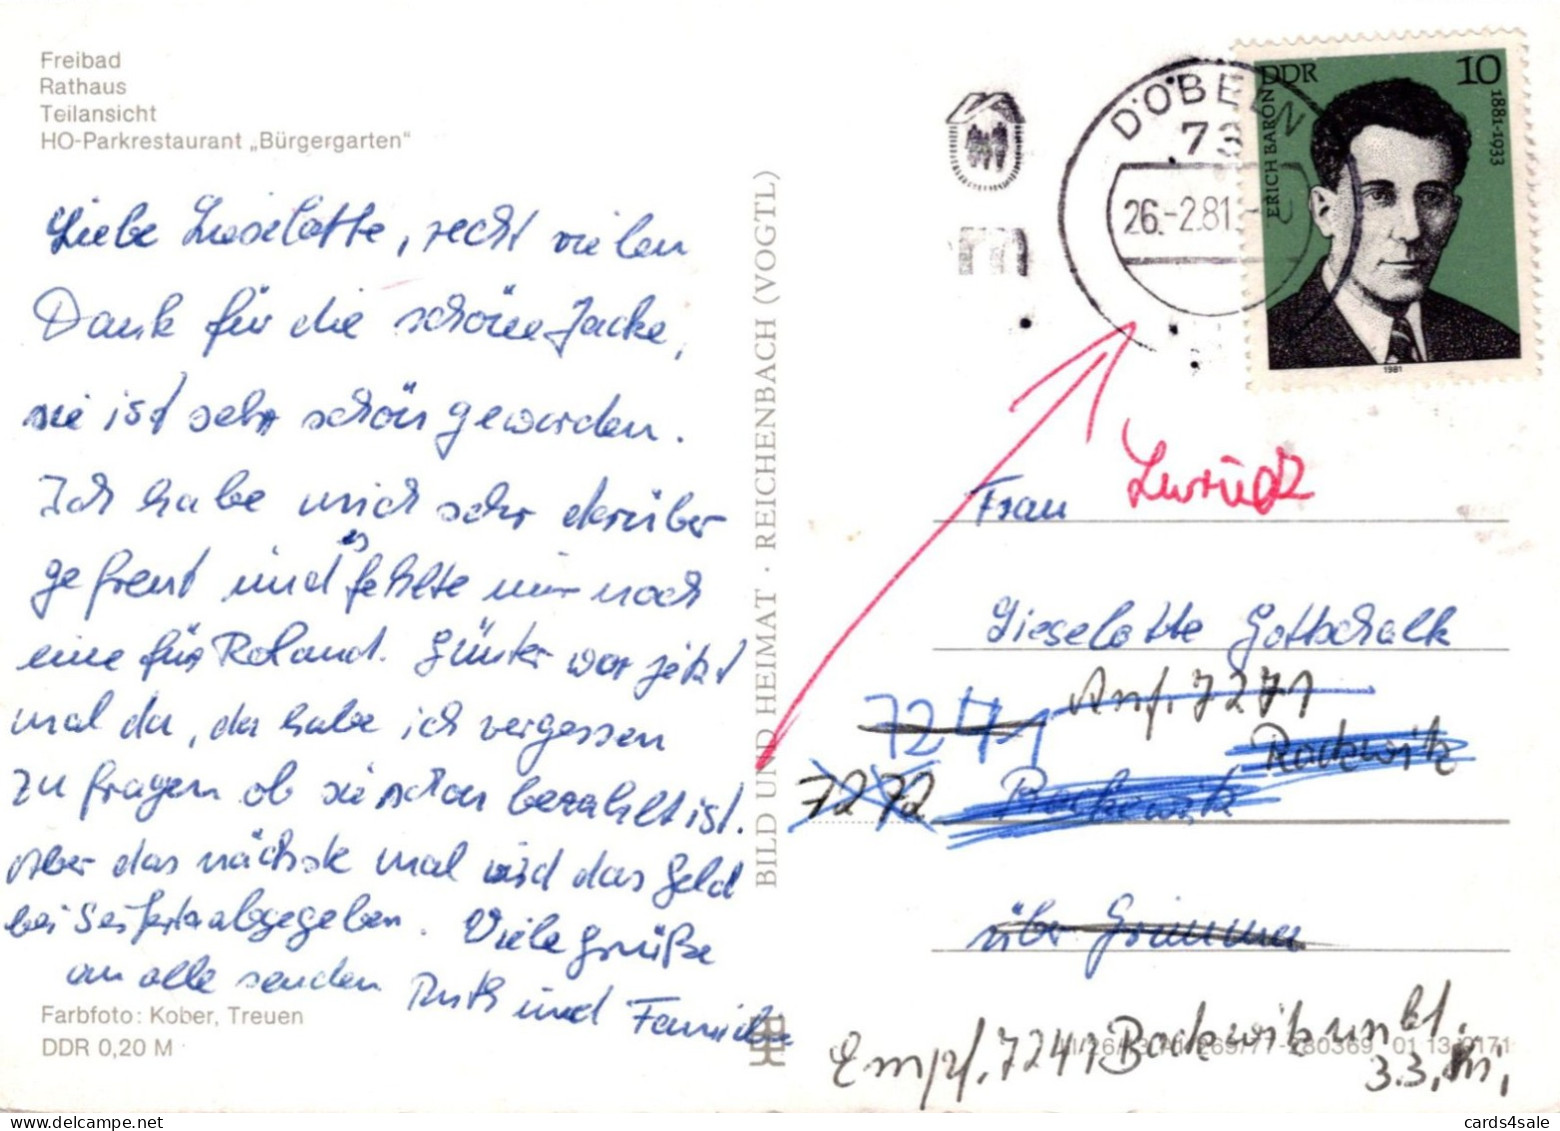 Freibad
Rathaus
Teilansicht
HO-Parkrestaurant „Bürgergarten“
Liebe Lieselotte, recht vielen
Dank für die schöne Jacke,
sie ist sehr schön geworden.
Ich habe mich sehr darüber
gefreut und es fehlte nur noch
eine für Roland. Günter war jetzt
mal da, da habe ich vergessen
zu fragen ob sie schon bezahlt ist.
Aber das nächste mal wird das Geld
bei Seiferts abgegeben. Viele Grüße
an alle senden Ruth und Familie
Farbfoto: Kober, Treuen
DDR 0,20 M
BILD UND HEIMAT · REICHENBACH (VOGTL)
DÖBELN
73
26.-2.81
DDR
10
ERICH BARON
1881-1933
1981
Zurück
Frau
Lieselotte Gottschalk
Anf. 7271
7241
Rackwitz
7272
Rackwitz
über Grimma
Empf. 7241 Bockwitz unbk.
3.3.
cards4sale